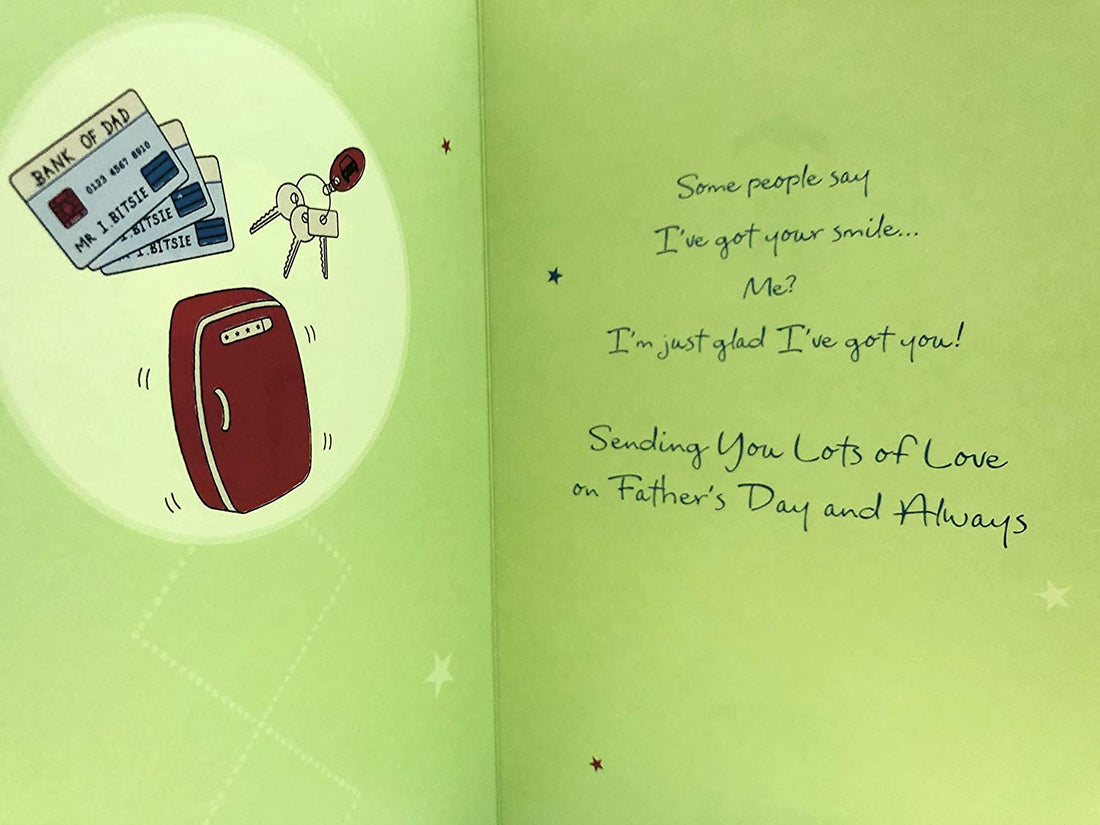 BANK OF DAD
0123 4567 8910
MR I.BITSIE
I.BITSIE
I.BITSIE
Some people say
I've got your smile...
Me?
I'm just glad I've got you!
Sending You Lots of Love
on Father's Day and Always